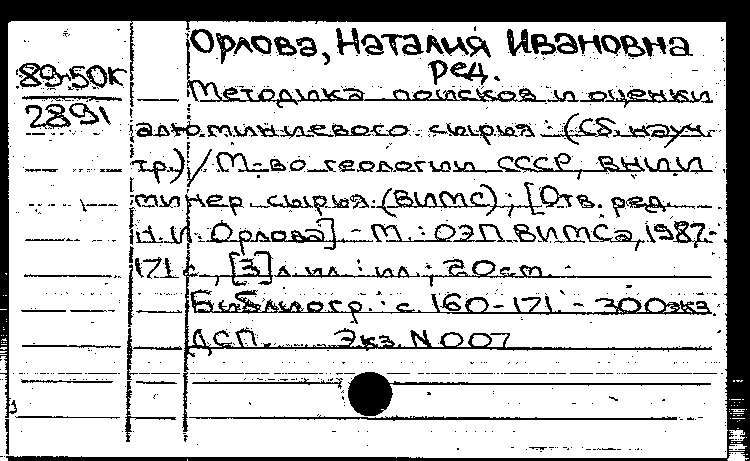 Орлова, Наталия Ивановна
ред.
89-50К
2891
Методика поисков и оценки
алюминиевого сырья : (Сб. науч.
тр.) / М-во геологии СССР, ВНИИ
минер. сырья (ВИМС) ; [Отв. ред.
Н.И. Орлова]. - М. : ОЭП ВИМСа, 1987. -
171 с., [3] л. ил. : ил. ; 20 см. -
Библиогр. : с. 160-171. - 300 экз.
ДСП. Экз. N 007